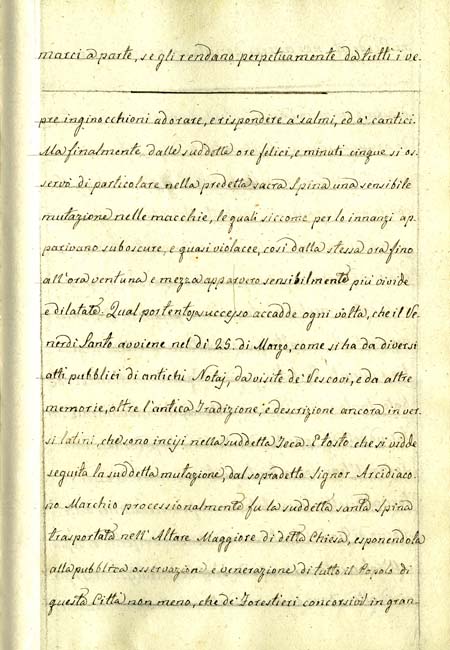 marci a parte, se gli rendano perpetuamente da tutti i ve-
pre inginocchioni adorare, e rispondere a' salmi, ed a' cantici.
Ma finalmente dalle suddette ore felici, e minuti cinque si os-
servò di particolare nella predetta sacra Spina una sensibile
mutazione nelle macchie, le quali siccome per lo innanzi ap-
parivano suboscure, e quasi violacee, così dalla stessa ora fino
all'ora ventuna e mezza apparvero sensibilmente più vivide
e dilatate. Qual portentoso successo accadde ogni volta, che il Ve-
nerdi Santo avviene nel di 25. di Marzo, come si ha da diversi
atti pubblici di antichi Notaj, da visite de' Vescovi, e da altre
memorie, oltre l'antica Tradizione, e descrizione ancora in ver-
si latini, che sono incisi nella suddetta Teca. E tosto che si vidde
seguita la suddetta mutazione, dal sopradetto Signor Arcidiaco-
no Marchio processionalmente fu la suddetta santa Spina
trasportata nell'Altare Maggiore di detta Chiesa, esponendola
alla pubblica osservazione e venerazione di tutto il Popolo di
questa Città non meno, che de' Forestieri concorsivi in gran-